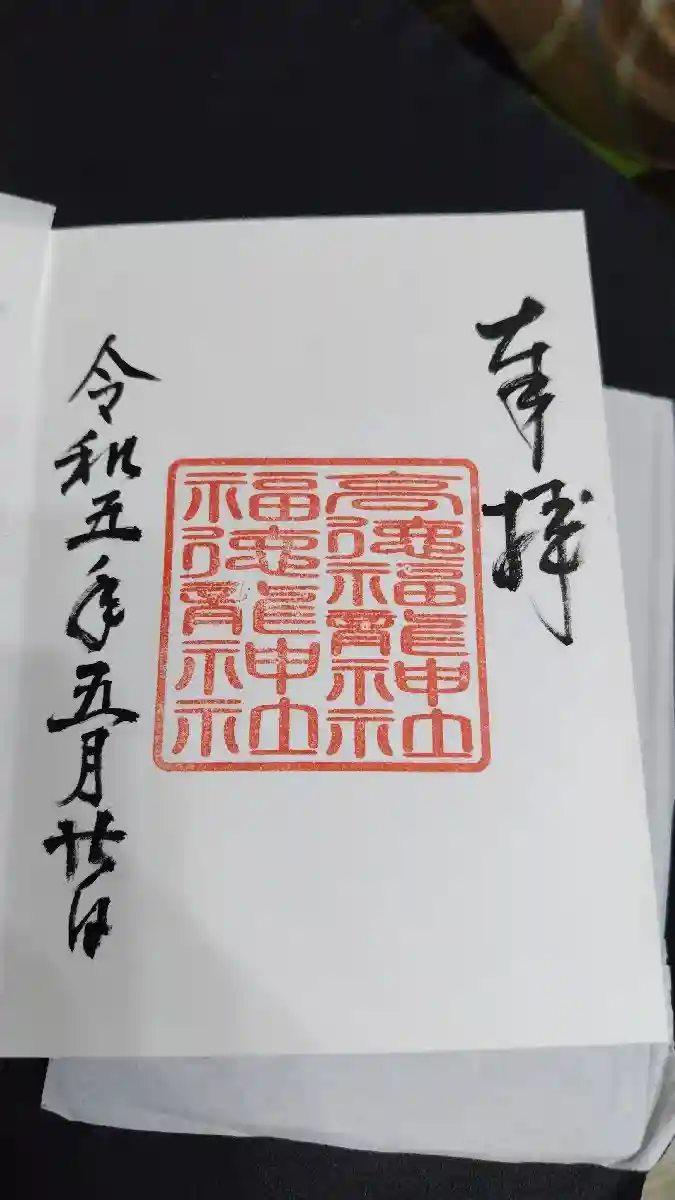 奉拝
高德福龍神社
福德龍神社
令和五年五月廿日